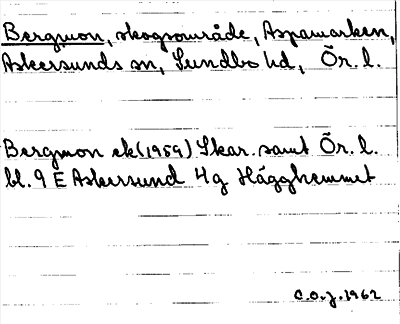 Bergmon, skogsområde, Aspamarken,
Askersunds sn, Sundbo hd, Ör. l.
Bergmon ek (1959) Skar. samt Ör. l.
bl. 9 E Askersund 4 g Hägghemmet
C.O.J. 1962